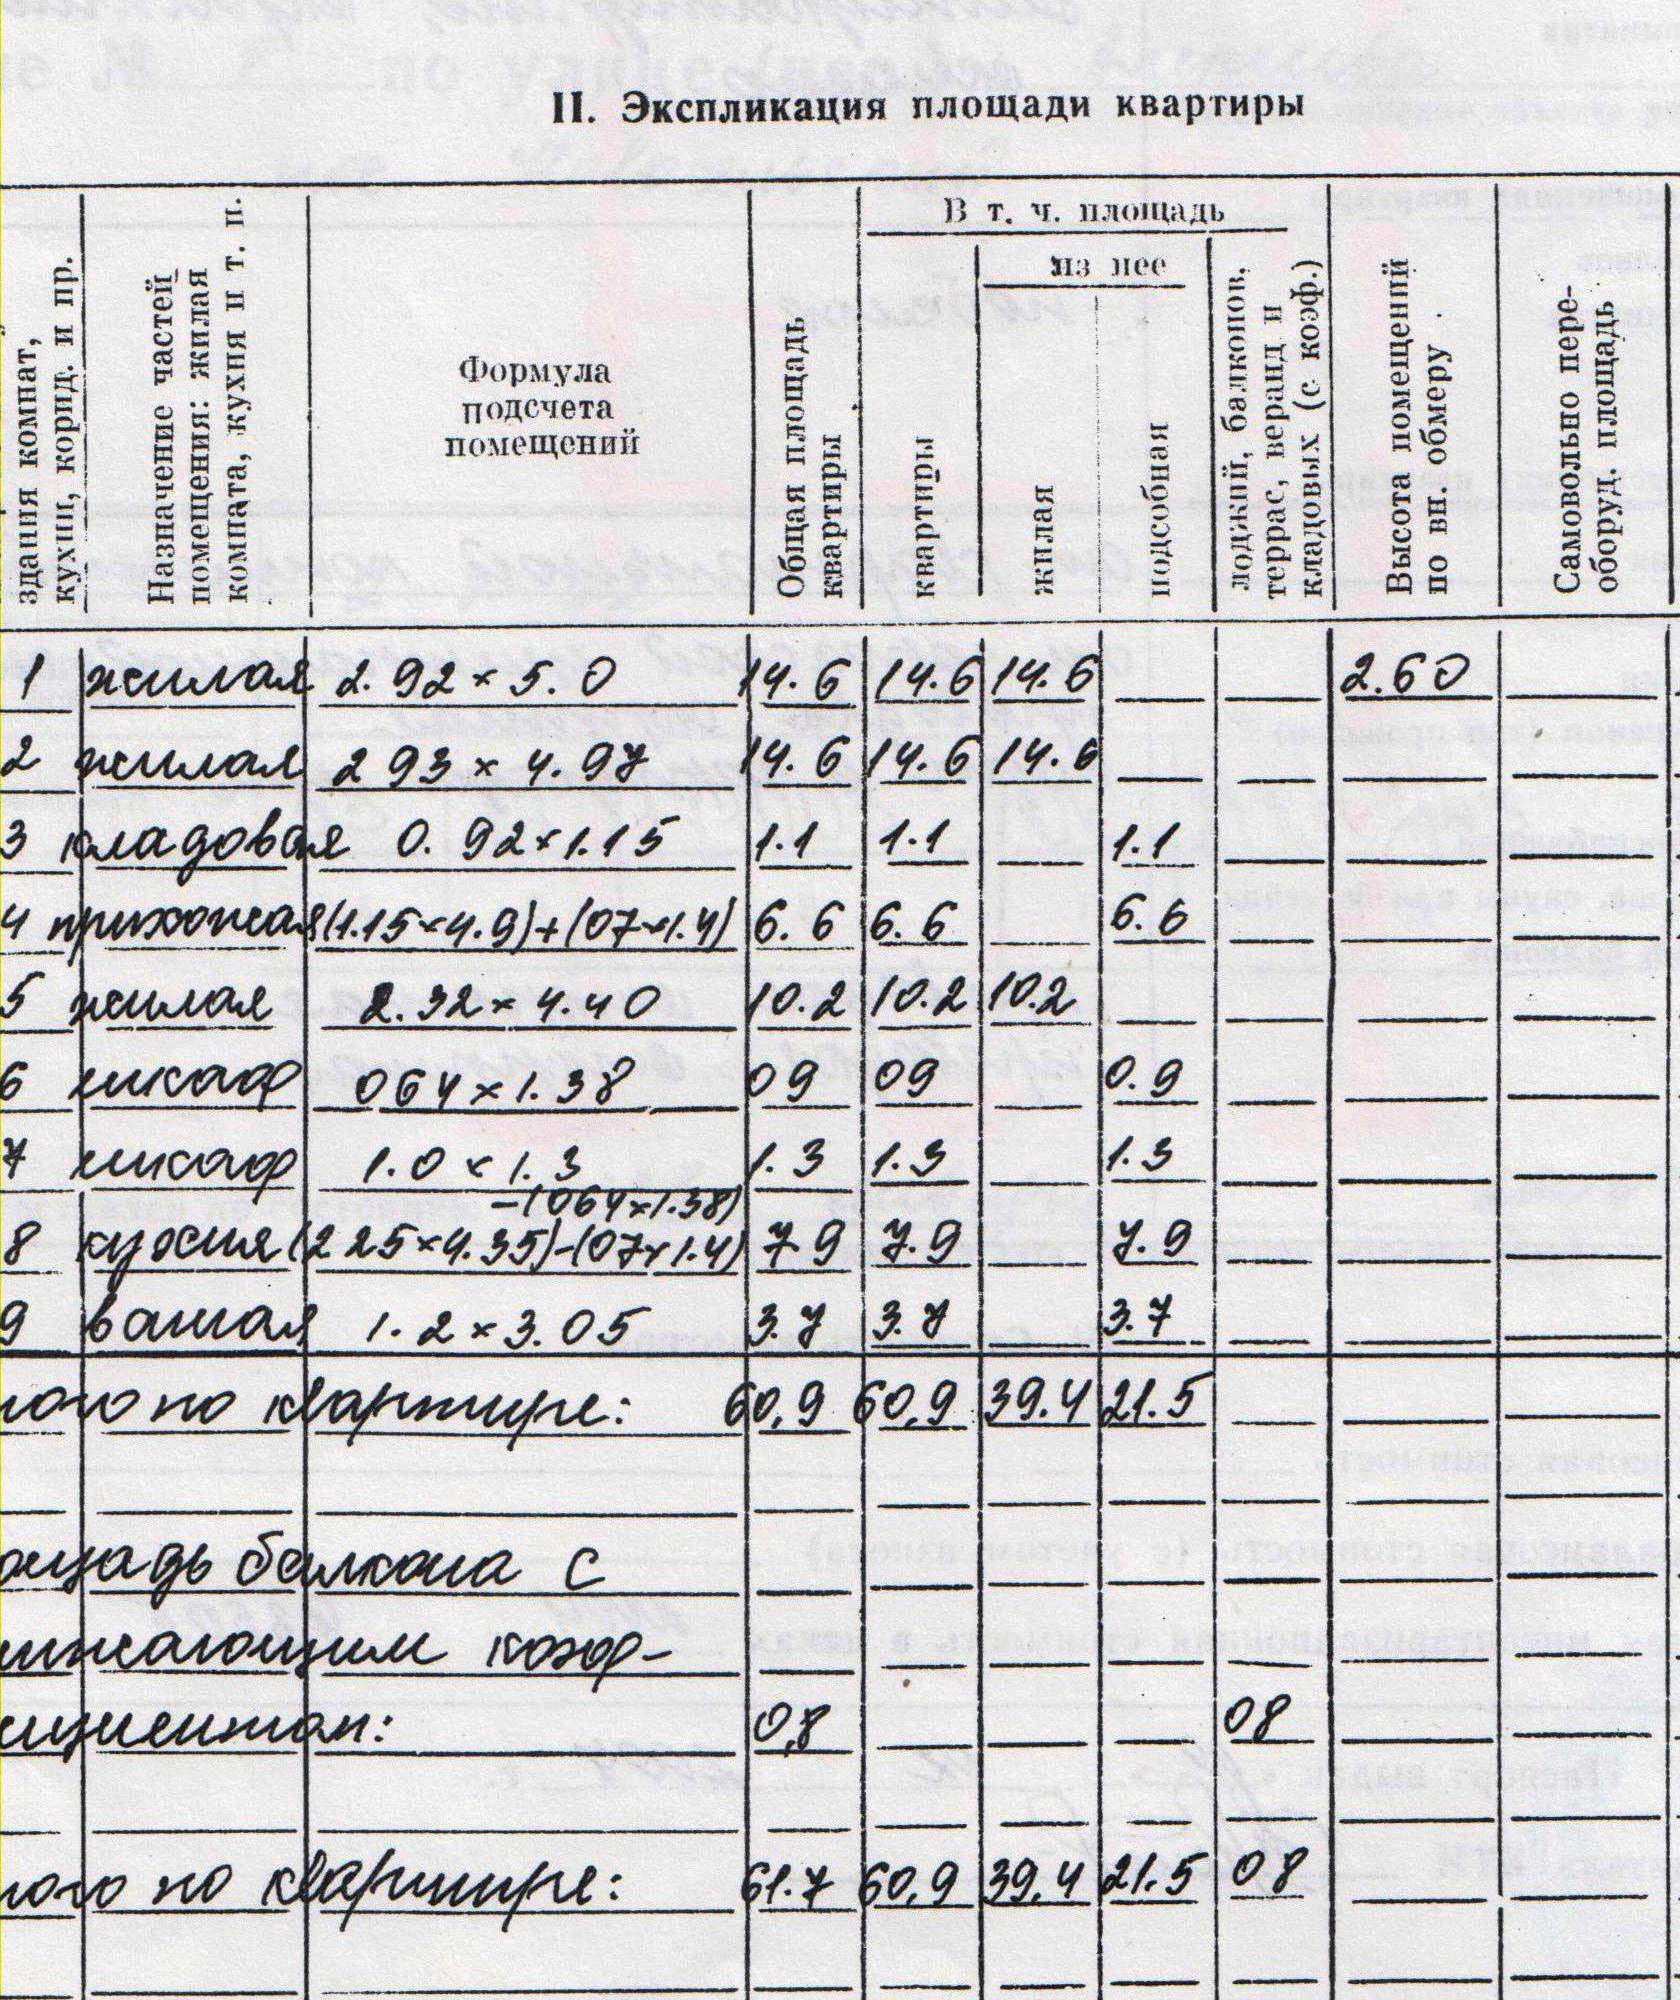 II. Экспликация площади квартиры
здания комнат,
кухни, корид. и пр.
Назначение частей
помещения: жилая
комната, кухня и т. п.
Формула
подсчета
помещений
Общая площадь
квартиры
В т. ч. площадь
квартиры
из нее
жилая
подсобная
лоджий, балконов,
террас, веранд и
кладовых (с коэф.)
Высота помещений
по вн. обмеру
Самовольно пере-
оборуд. площадь
1 жилая 2.92×5.0 14.6 14.6 14.6 — — 2.60 —
2 жилая 2 93×4.97 14.6 14.6 14.6 — — — —
3 кладовая 0.92×1.15 1.1 1.1 — 1.1 — — —
4 прихожая (1.15×4.9)+(07×1.4) 6.6 6.6 — 6.6 — — —
5 жилая 2.32×4.40 10.2 10.2 10.2 — — — —
6 шкаф 064×1.38 09 09 — 0.9 — — —
7 шкаф 1.0×1.3 1.3 1.3 — 1.3 — — —
-(064×1.38)
8 кухня (2 25×4.35)-(07×1.4) 7.9 7.9 — 7.9 — — —
9 ванная 1.2×3.05 3.7 3.7 — 3.7 — — —
того по квартире: 60,9 60,9 39.4 21.5 — — —
ощадь балкона с
ижающим коэф-
ициентом: 0,8 — — — 08 — —
того по квартире: 61.7 60,9 39,4 21.5 08 — —